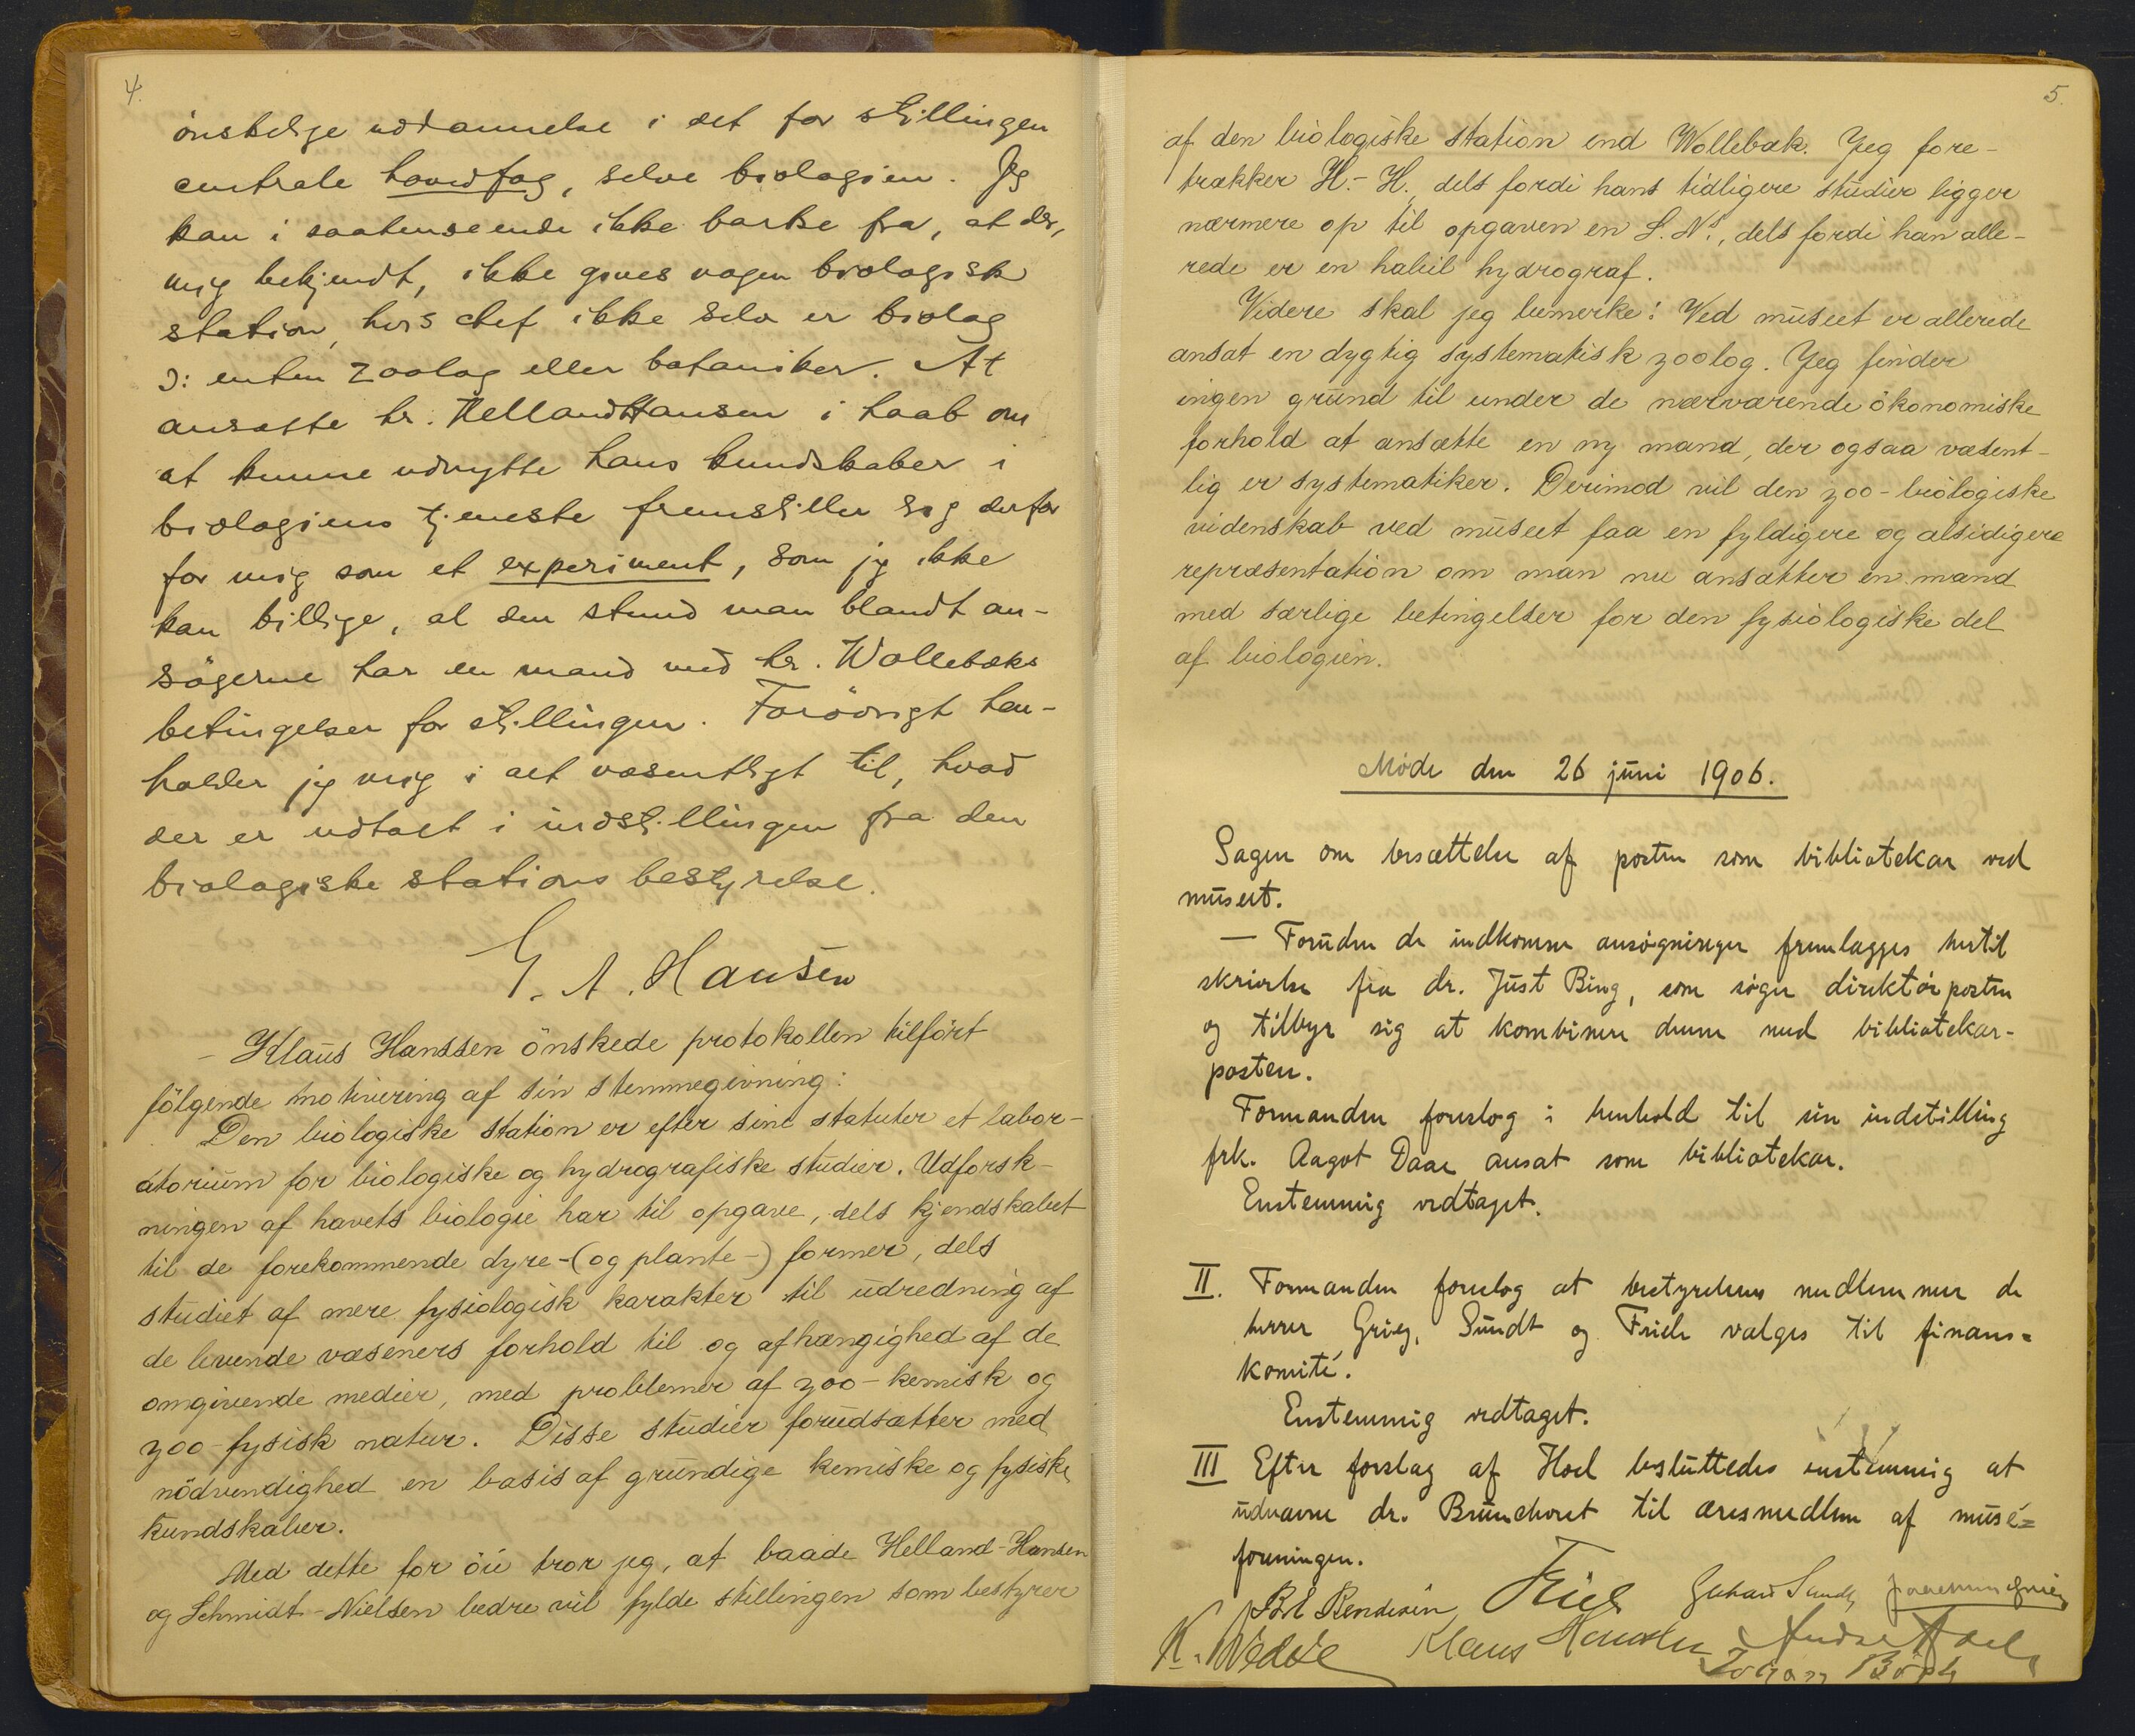 4.
önskelige uddannelse i det for stillingen
centrale hovedfag, selve biologien. Jeg
kan i saahenseende ikke barke fra, at der,
mig bekjendt, ikke gives nogen biologisk
station, hvis chef ikke selv er biolog
ɔ: enten zoolog eller botaniker. At
ansætte hr. Helland Hansen i haab om
at kunne udnytte hans kundskaber i
biologiens tjeneste fremstiller sig derfor
for mig som et experiment, som jeg ikke
kan billige, al den stund man blandt an-
sögerne har en mand med hr. Wollebæks
betingelser for stillingen. Forövrigt hen-
holder jeg mig i alt væsentligt til, hvad
der er udtalt i indstillingen fra den
biologiske stations bestyrelse.
G. A. Hansen
- Klaus Hanssen önskede protokollen tilfört
fölgende motivering af sin stemmegivning:
Den biologiske station er efter sine statuter et labor-
atorium for biologiske og hydrografiske studier. Udforsk-
ningen af havets biologie har til opgave, dels kjendskabet
til de forekommende dyre-(og plante-) former, dels
studiet af mere fysiologisk karakter til udredning af
de levende væseners forhold til og afhængighed af de
omgivende medier, med problemer af zoo-kemisk og
zoo-fysisk natur. Disse studier forudsætter med
nödvendighed en basis af grundige kemiske og fysiske
kundskaber.
Med dette for öie tror jeg, at baade Helland-Hansen
og Schmidt-Nielsen bedre vil fylde stillingen som bestyrer
5.
af den biologiske station end Wollebæk. Jeg fore-
trækker H.-H., dels fordi hans tidligere studier ligger
nærmere op til opgaven en S. N.s, dels fordi han alle-
rede er en habil hydrograf.
Videre skal jeg bemerke: Ved museet er allerede
ansat en dygtig systematisk zoolog. Jeg finder
ingen grund til under de nærværende ökonomiske
forhold at ansætte en ny mand, der ogsaa væsent-
lig er systematiker. Derimod vil den zoo-biologiske
videnskab ved museet faa en fyldigere og alsidigere
repræsentation om man nu ansætter en mand
med særlige betingelser for den fysiologiske del
af biologien.
Møde den 26 juni 1906.
Sagen om besættelse af posten som bibliotekar ved
museet.
— Foruden de indkomne ansøgninger fremlægges hertil
skrivelse fra dr. Just Bing, som søger direktørposten
og tilbyr sig at kombinere denne med bibliotekar-
posten.
Formanden foreslog i henhold til sin indstilling
frk. Aagot Daae ansat som bibliotekar.
Enstemmig vedtaget.
II. Formanden foreslog at bestyrelsens medlemmer de
herrer Grieg, Sundt og Friele vælges til finans=
komité.
Enstemmig vedtaget.
III Efter forslag af Hoel besluttedes enstemmig at
udnævne dr. Brunchorst til æresmedlem af musé=
foreningen.
Friele
Gerhard Sundt
Joachim Grieg
K. Wedde
Klaus Hanssen
Johan Bögh